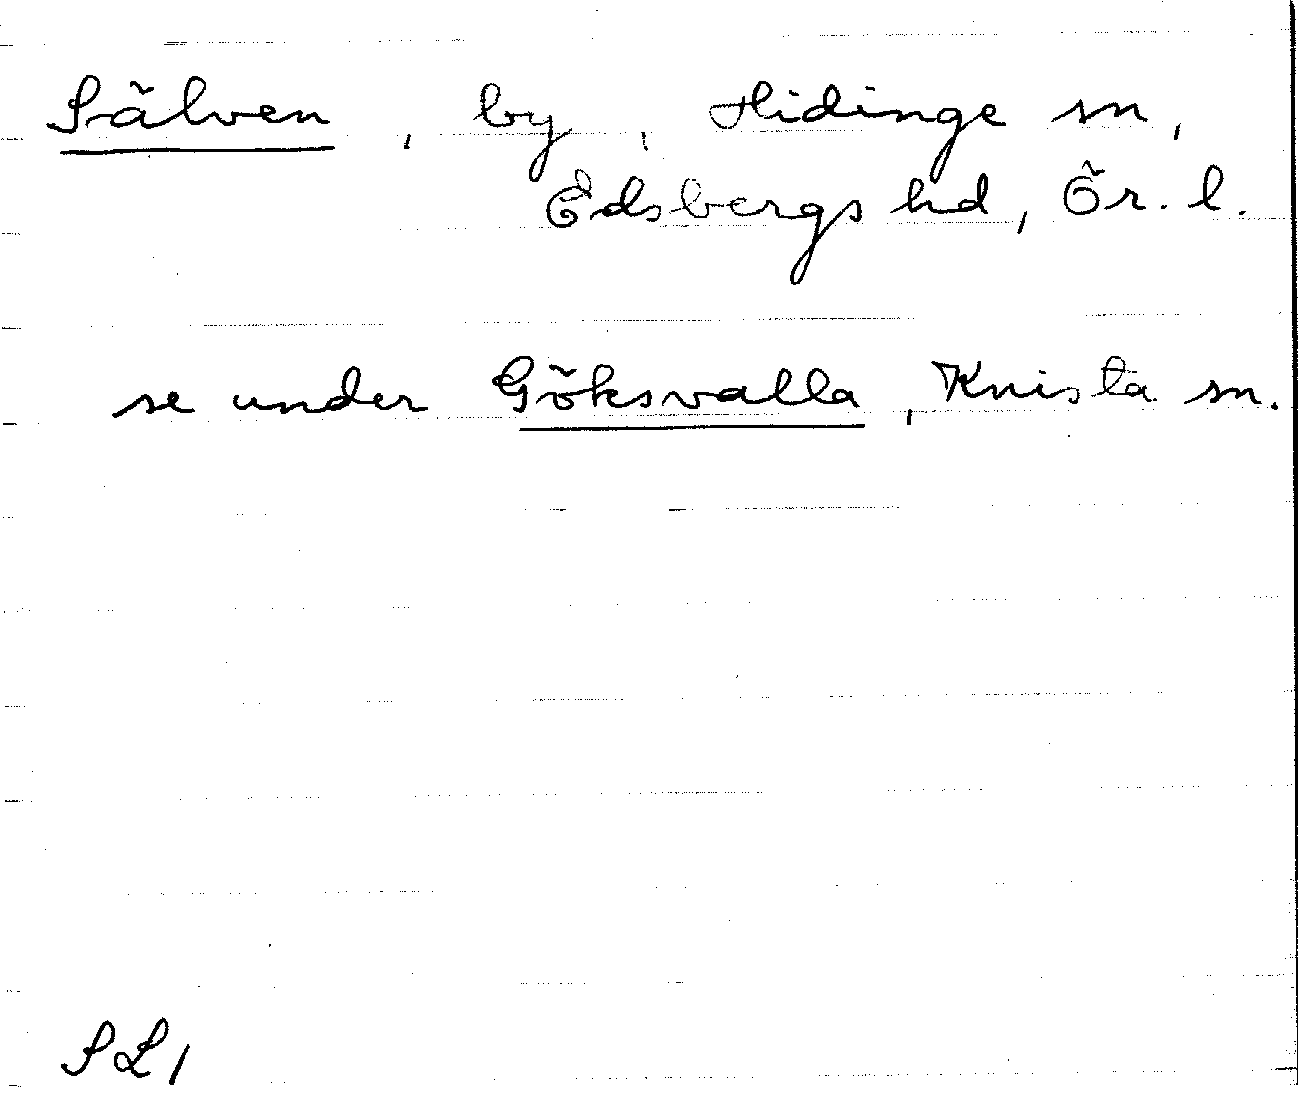 Sälven, by, Hidinge sn,
Edsbergs hd, Ör. l.
se under Göksvalla, Knista sn.
SL1